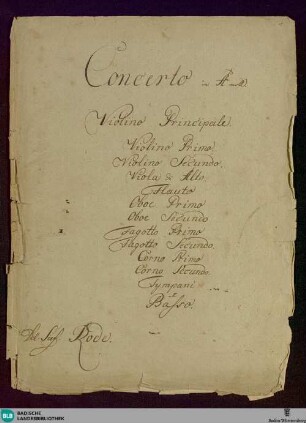 Concerto in A moll.
Violino Principale.
Violino Primo.
Violino Secundo.
Viola & Alto.
Flauto
Oboe Primo
Oboe Secundo
Fagotto Primo
Fagotto Secundo.
Corno Primo
Corno Secundo
Tympani
et
Basso.
Del Sig Rode.
BLB BADISCHE
LANDESBIBLIOTHEK
Baden-Württemberg